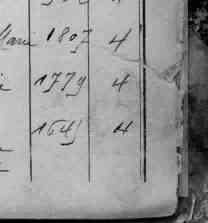 Marie 1807 4
1779 4
1645 4